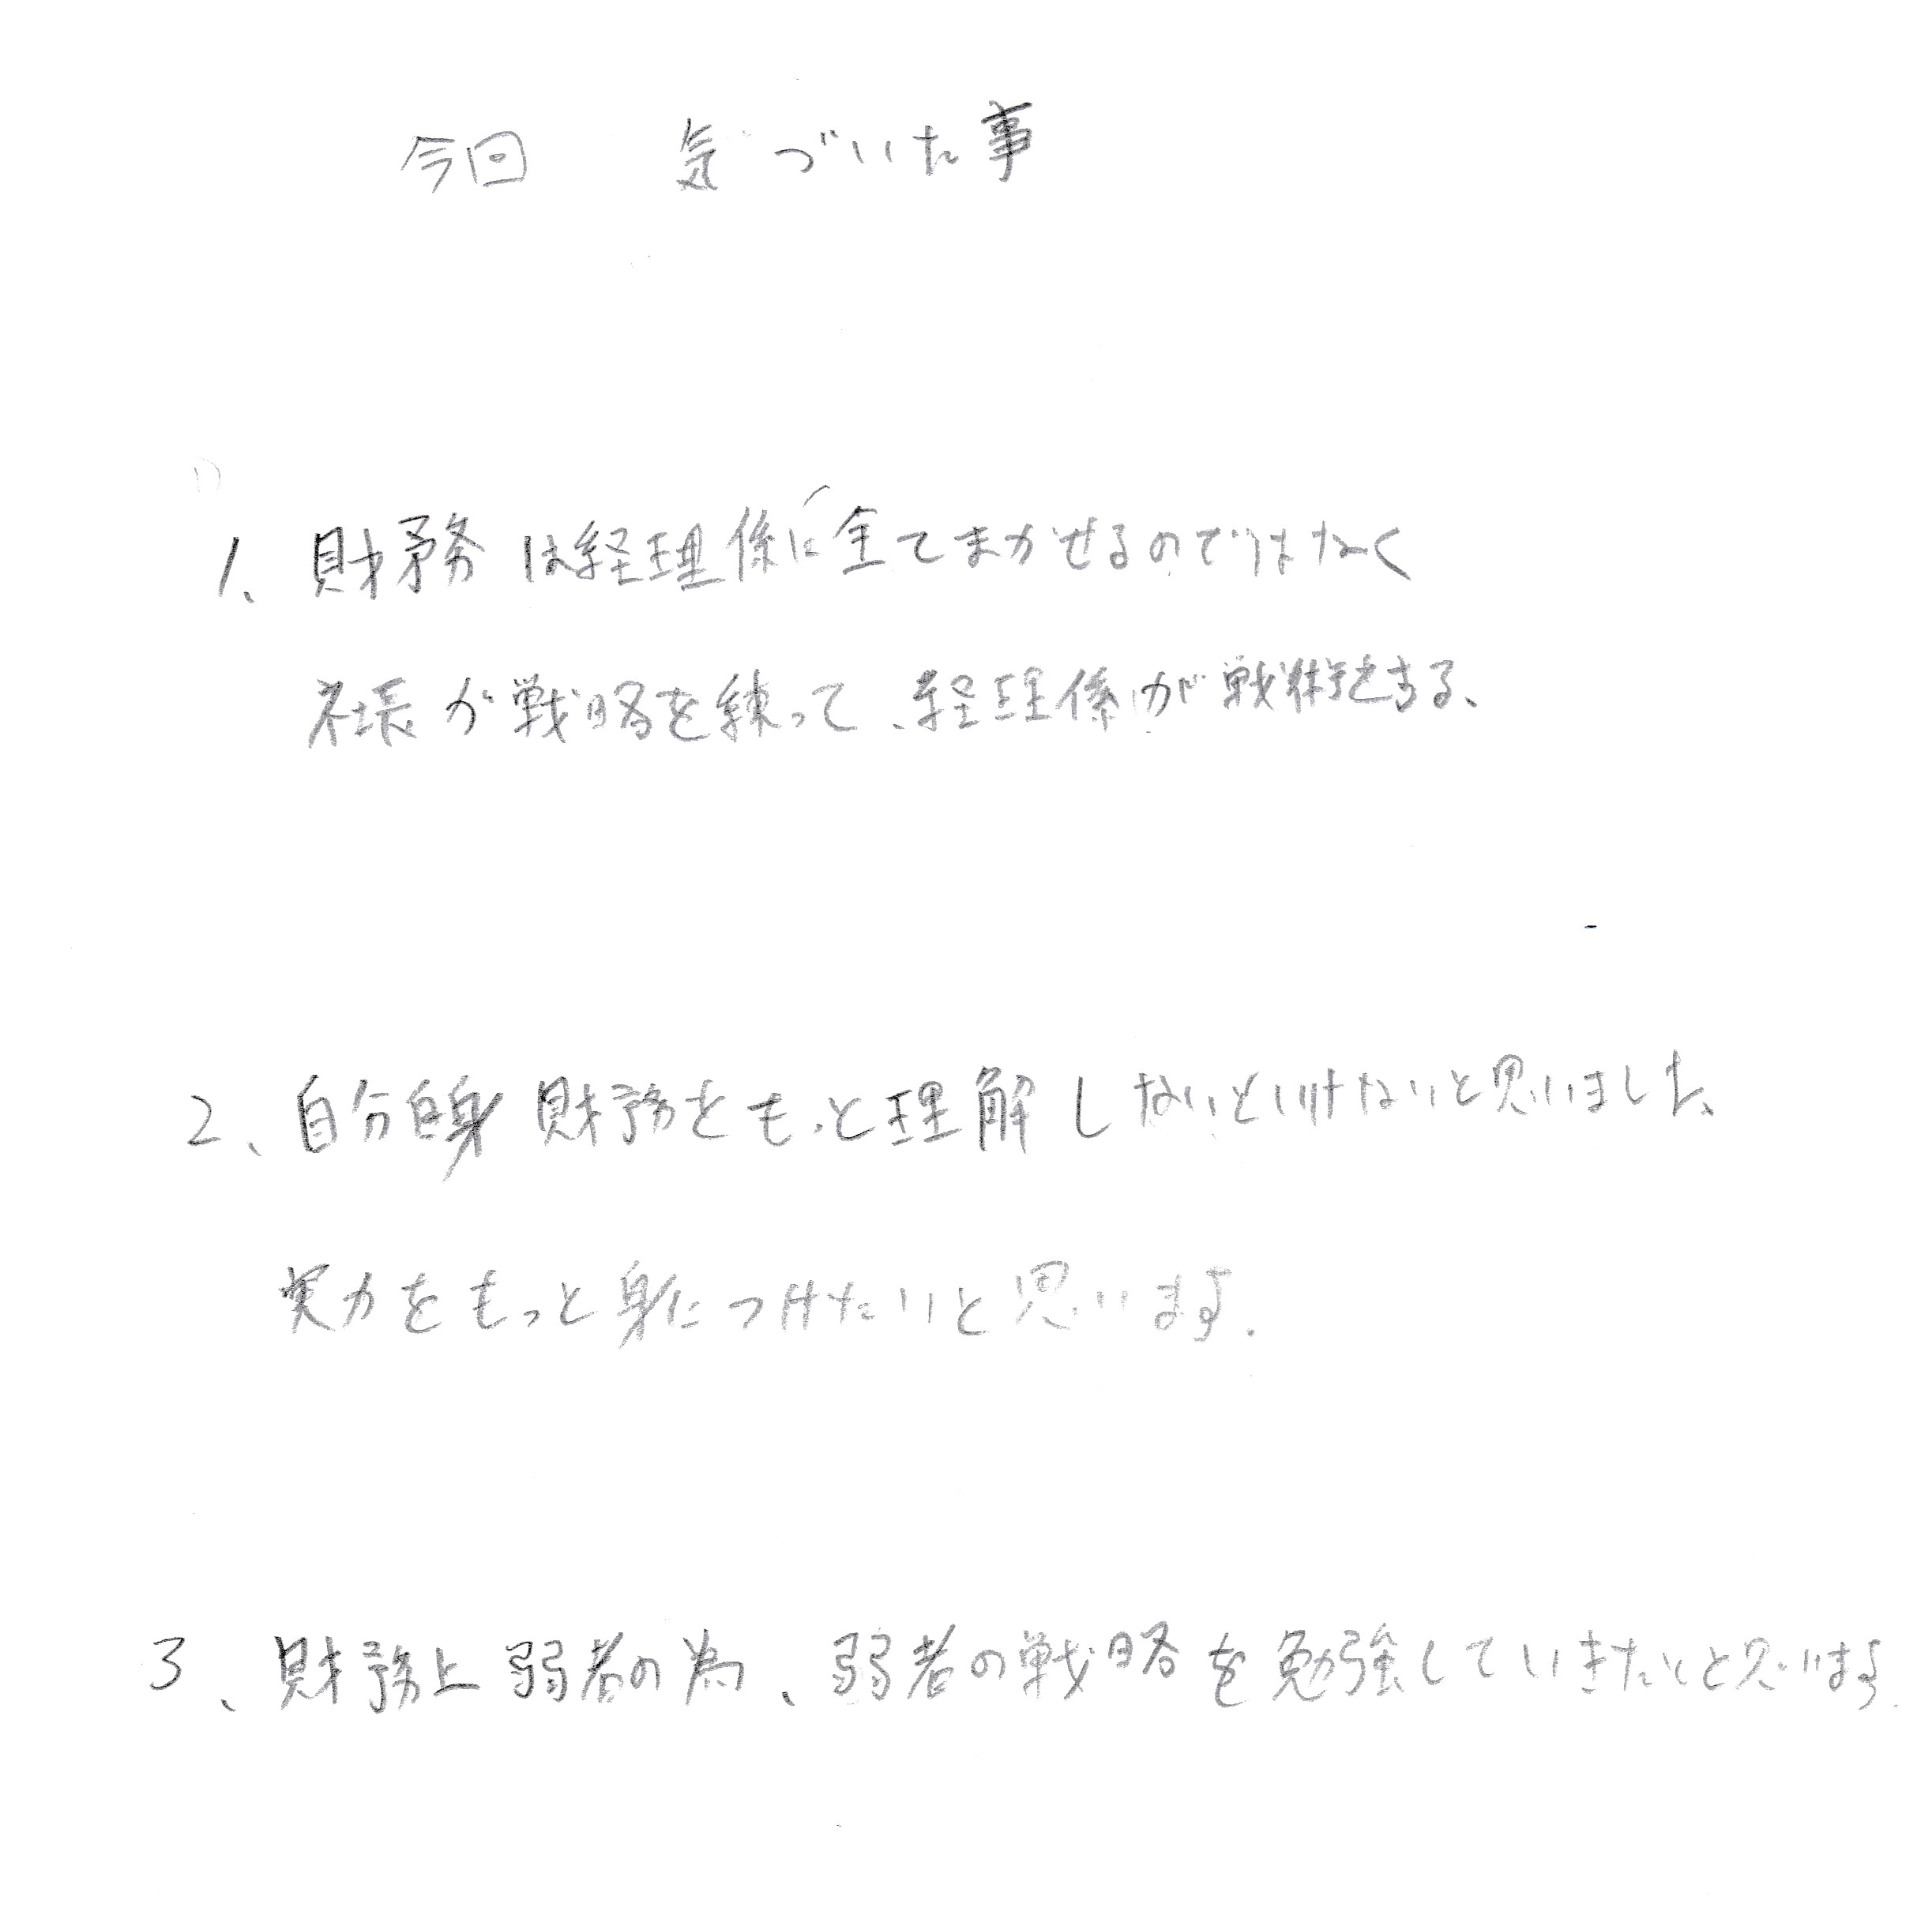 今回 気づいた事
1、財務は経理係に全てまかせるのではなく
社長が戦略を練って、経理係が戦術をする、
2、自分自身財務をもっと理解しないといけないと思いました、
実力をもっと身につけたいと思います.
3、財務上弱者の為、弱者の戦略を勉強していきたいと思います.